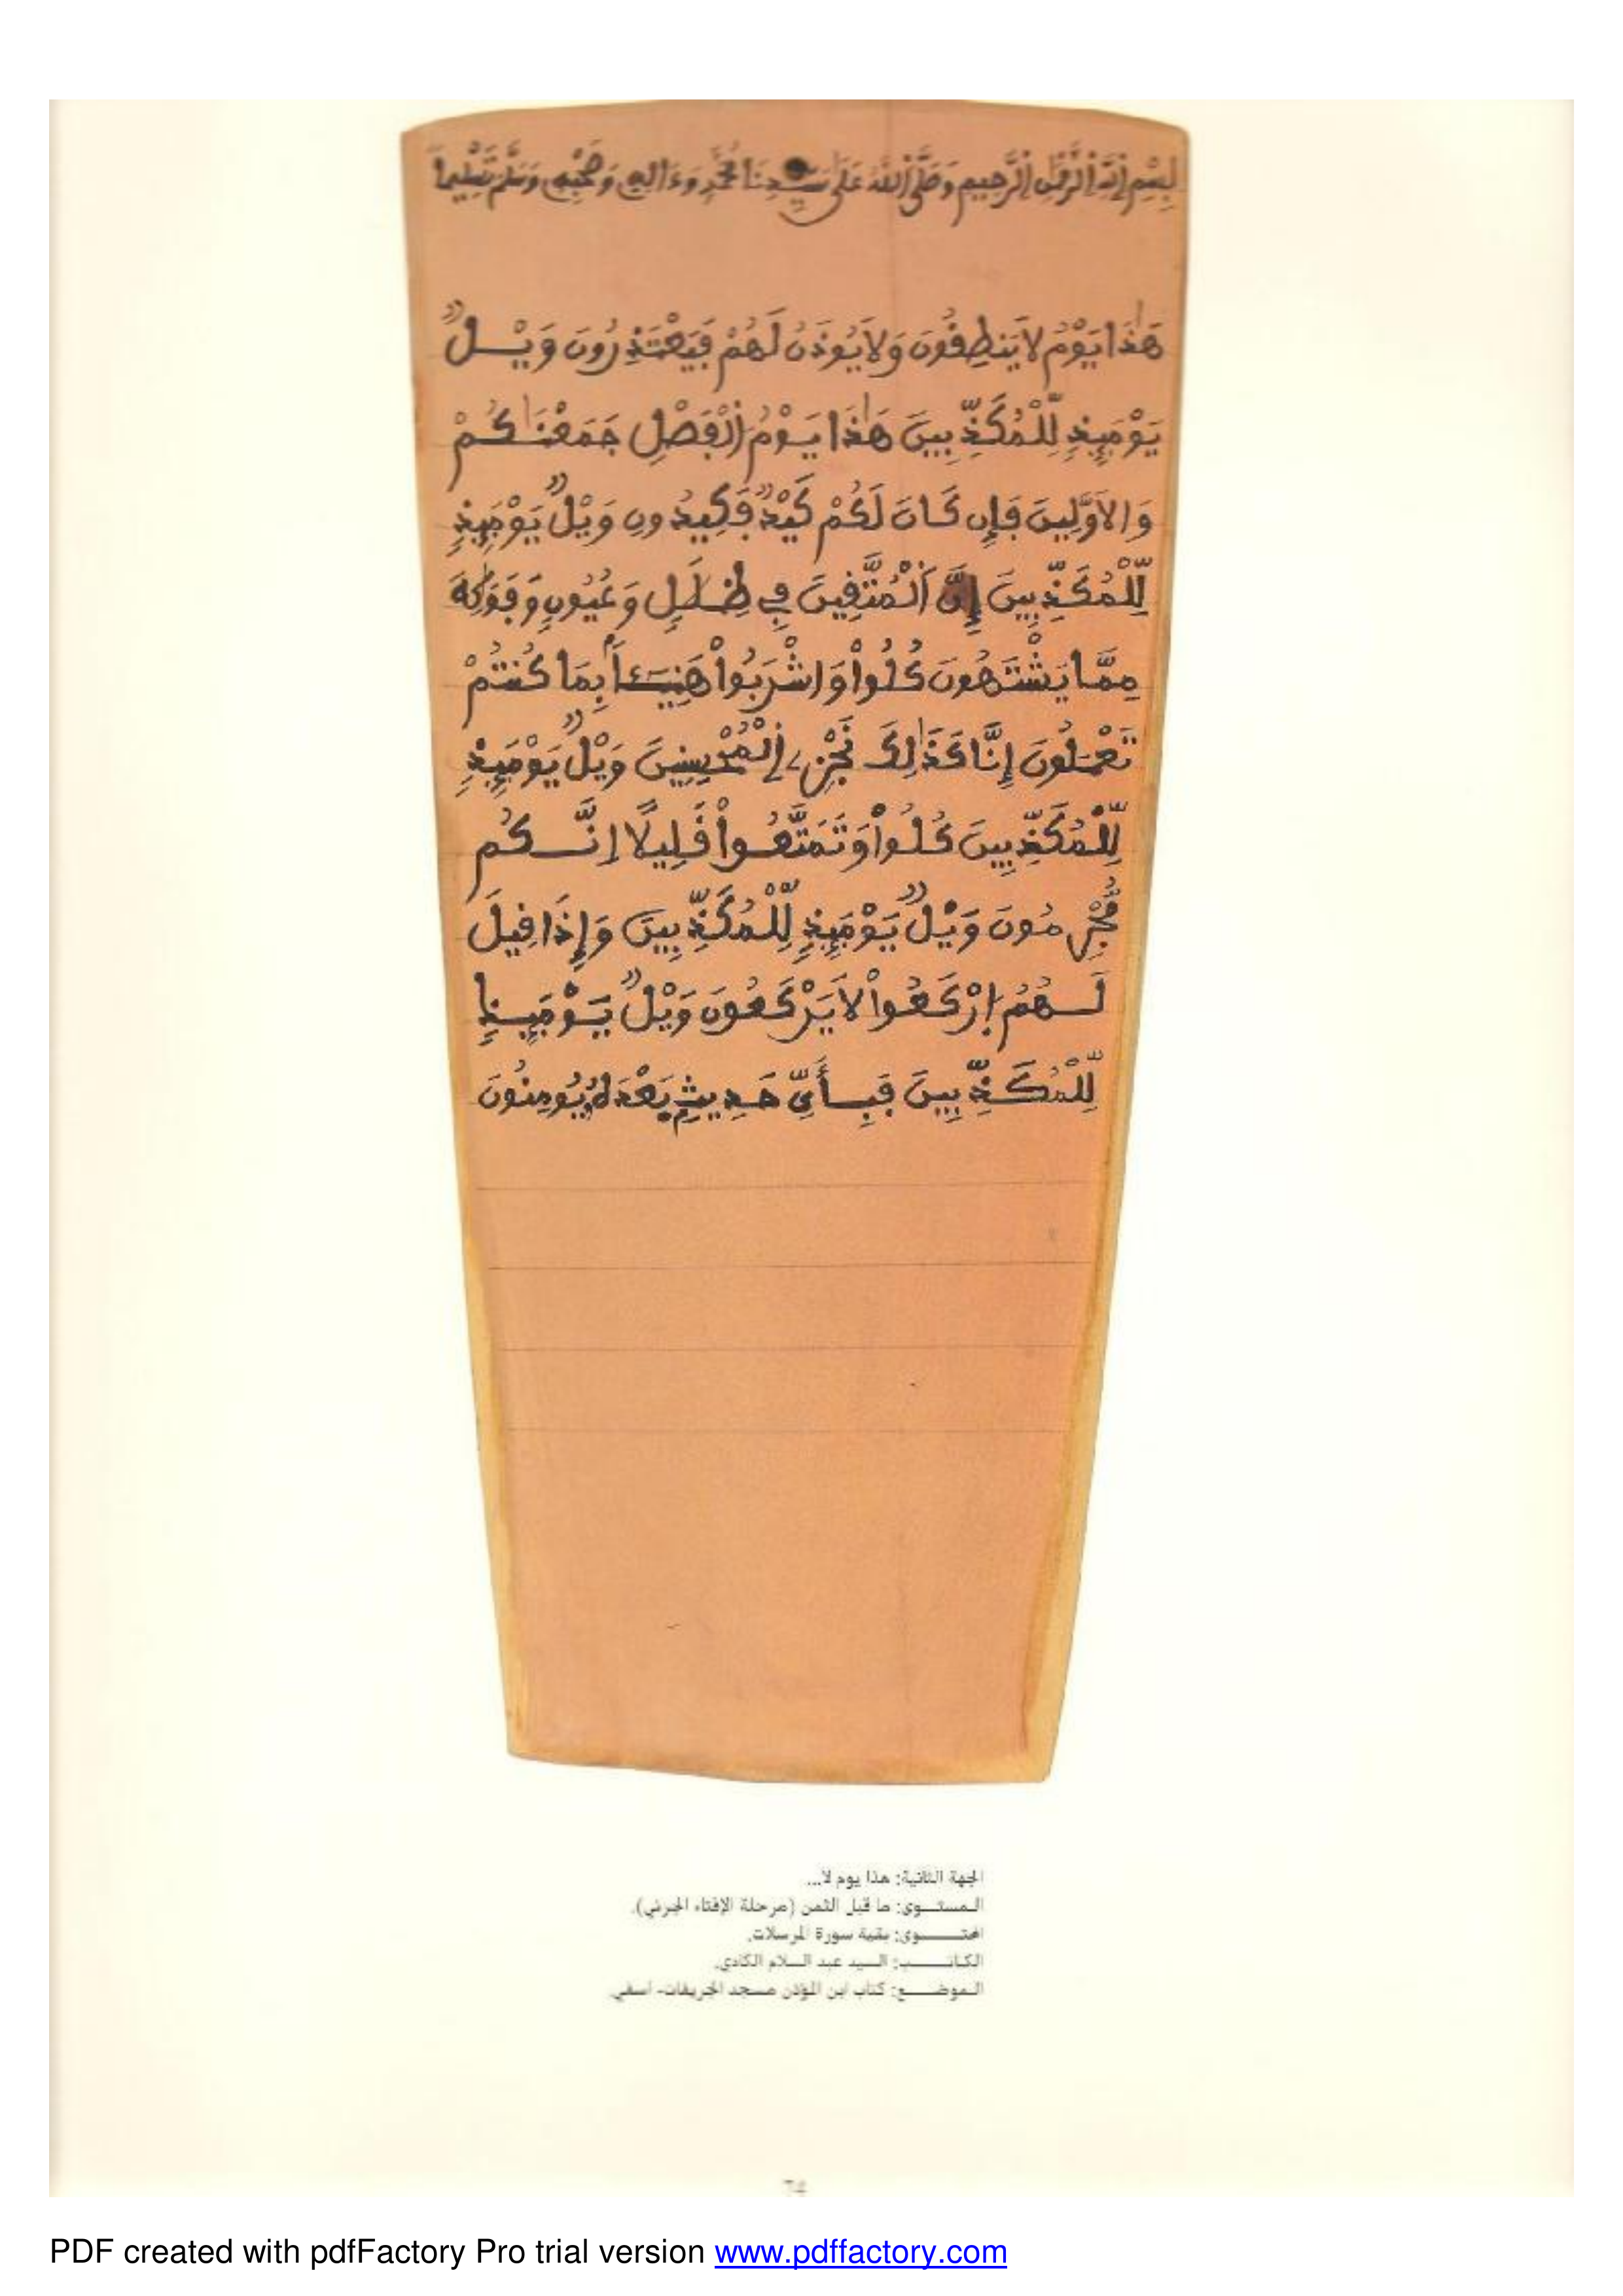 بِسْمِ اِ۬للَّهِ اِ۬لرَّحْمَٰنِ اِ۬لرَّحِيمِ وَصَلَّى اَ۬للَّهُ عَلَىٰ سَيِّدِنَا مُحَمَّدٍ وَءَالِهِ وَصَحْبِهِ وَسَلَّمَ تَسْلِيماً
هَٰذَا يَوْمُ لَا يَنطِقُونَ وَلَا يُوذَنُ لَهُمْ فَيَعْتَذِرُونَ وَيْلٌ
يَوْمَئِذٍ لِّلْمُكَذِّبِينَ هَٰذَا يَوْمُ اُ۬لْفَصْلِ جَمَعْنَٰكُمْ
وَالَاوَّلِينَ فَإِن كَانَ لَكُمْ كَيْدٌ فَكِيدُونِ وَيْلٌ يَوْمَئِذٍ
لِّلْمُكَذِّبِينَ إِنَّ اَ۬لْمُتَّقِينَ فِي ظِلَٰلٍ وَعُيُونٍ وَفَوَٰكِهَ
مِمَّا يَشْتَهُونَ كُلُواْ وَاشْرَبُواْ هَنِيـَٔاً بِمَا كُنتُمْ
تَعْمَلُونَ إِنَّا كَذَٰلِكَ نَجْزِي اِ۬لْمُحْسِنِينَ وَيْلٌ يَوْمَئِذٍ
لِّلْمُكَذِّبِينَ كُلُواْ وَتَمَتَّعُواْ قَلِيلًا اِنَّكُم
مُّجْرِمُونَ وَيْلٌ يَوْمَئِذٍ لِّلْمُكَذِّبِينَ وَإِذَا قِيلَ
لَهُمُ اُ۪رْكَعُواْ لَا يَرْكَعُونَ وَيْلٌ يَوْمَئِذٍ
لِّلْمُكَذِّبِينَ فَبِأَيِّ حَدِيثٍ بَعْدَهُ يُومِنُونَ
الجهة الثانية: هذا يوم لا...
المستــوى: ما قبل الثمن (مرحلة الإفتاء الجزئي).
المحتــوى: بقية سورة المرسلات.
الكاتــب: السيد عبد السلام الكادي.
الموضــع: كتاب ابن المؤذن مسجد الجريفات- اسفي.
74
PDF created with pdfFactory Pro trial version www.pdffactory.com